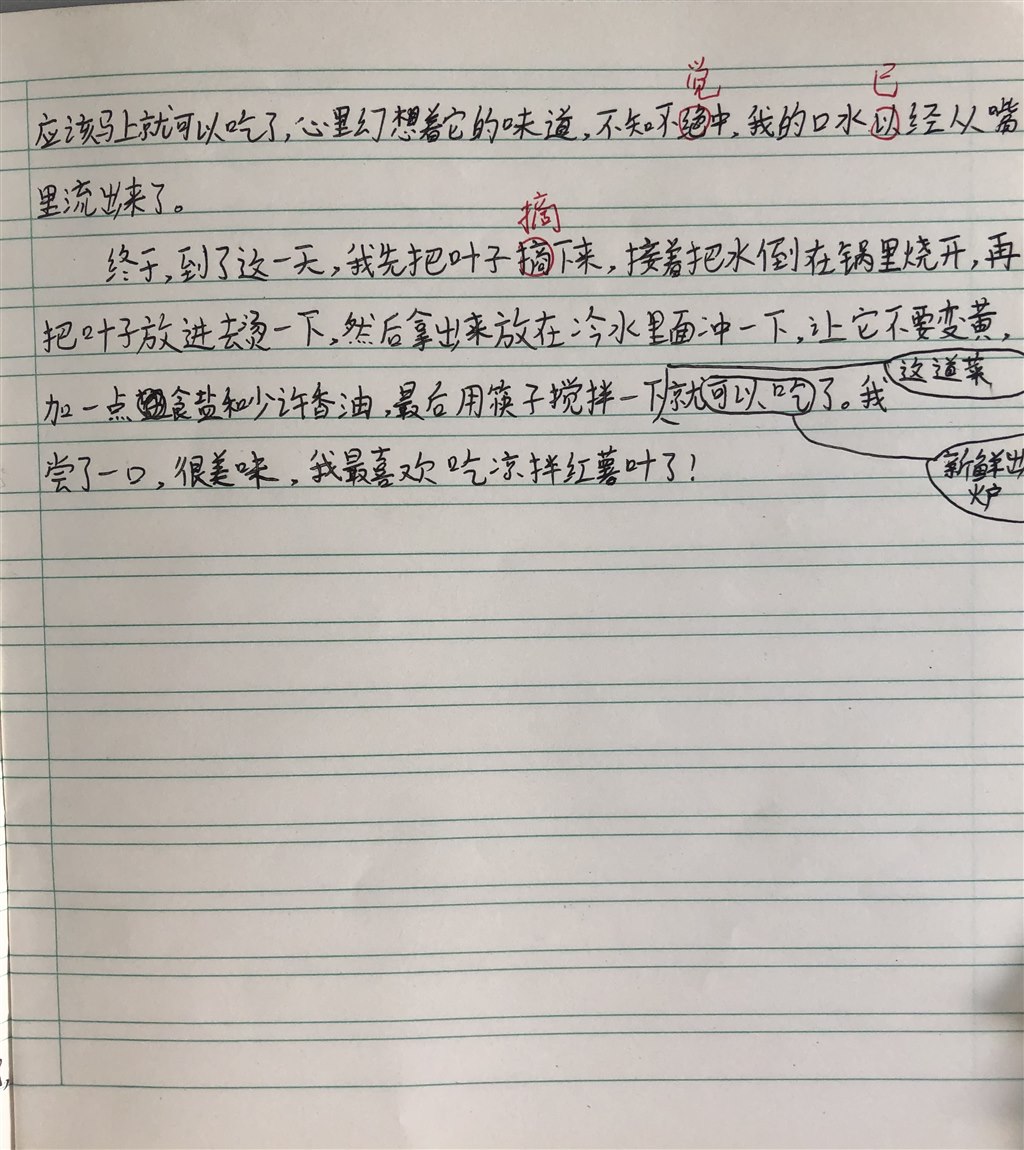 觉 已
应该马上就可以吃了，心里幻想着它的味道，不知不绝中，我的口水以经从嘴
里流出来了。
摘
终于，到了这一天，我先把叶子摘下来，接着把水倒在锅里烧开，再
把叶子放进去烫一下，然后拿出来放在冷水里面冲一下，让它不要变黄，
这道菜
加一点食盐和少许香油，最后用筷子搅拌一下就可以吃了。我
尝了一口，很美味，我最喜欢吃凉拌红薯叶了！
新鲜出
炉